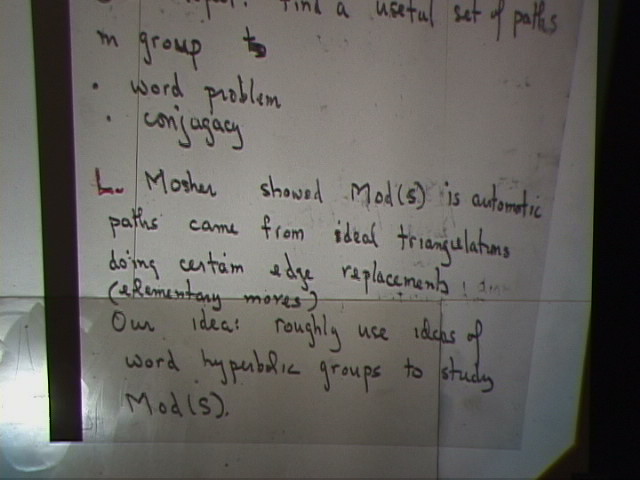 find a useful set of paths
in group to
• word problem
• conjugacy
L. Mosher showed Mod(S) is automatic
paths came from ideal triangulations
doing certain edge replacements
(elementary moves)
Our idea: roughly use ideas of
word hyperbolic groups to study
Mod(S).